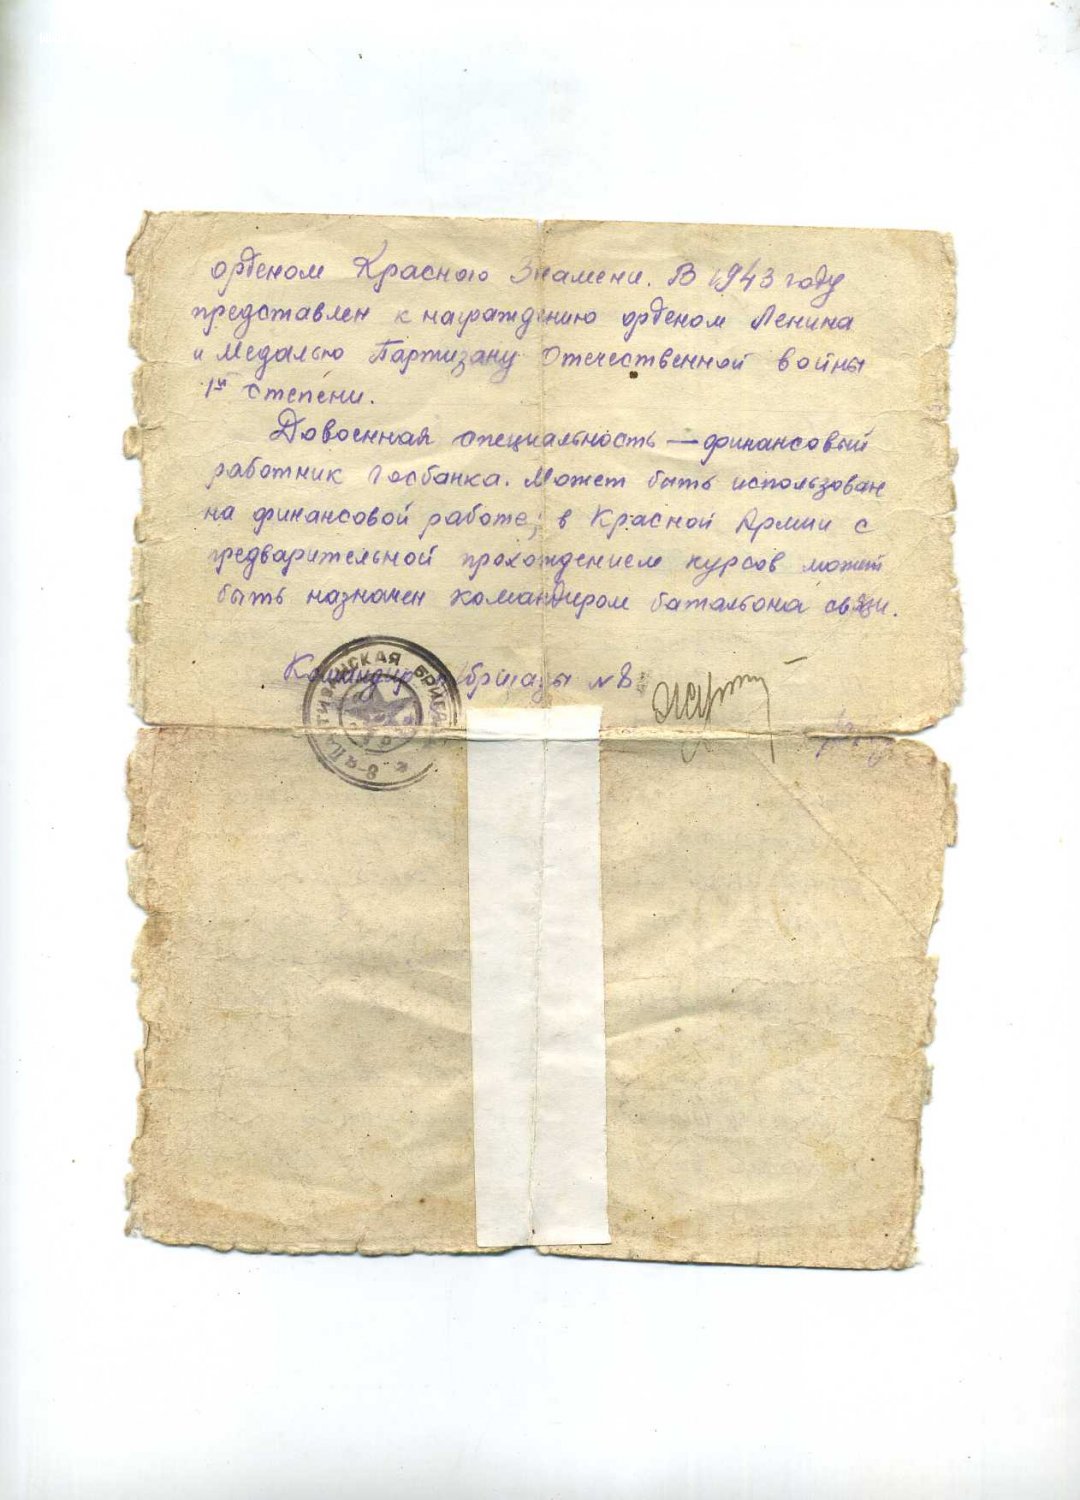 орденом Красного Знамени. В 1943 году
представлен к награждению орденом Ленина
и Медалью Партизану Отечественной войны
1й степени.
Довоенная специальность — финансовый
работник Госбанка. Может быть использован
на финансовой работе, в Красной Армии с
предварительной прохождением курсов может
быть назначен командиром батальона связи.
Командир бригады №8
8-я ПАРТИЗАНСКАЯ БРИГАДА